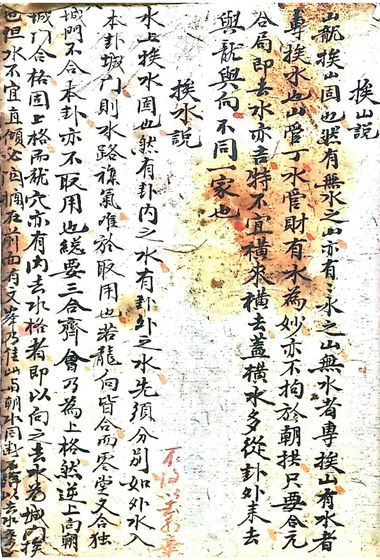 挨山說
山龍挨山固也然有無水之山亦有之水之山無水者專挨山有水者
專挨水也山管丁水管財有水為妙亦不拘於朝拱只要合元
合局即去水亦吉特不宜橫來橫去蓋橫水多從卦外来去
與龍與向不同一家也
挨水說
水上挨水固也然有卦內之水有卦外之水先須分别如外水入
本卦城門則水路襍氣唯於取用也若龍向皆合而零堂又合独
城門不合本卦亦不取用也總要三合齊會乃為上格然逆上向朝
城門合格固上格而龍穴亦有内去水格者即以向之去水為城門挨
也但水不宜直傾必須攔在前面有文峯乃佳山与朝水同